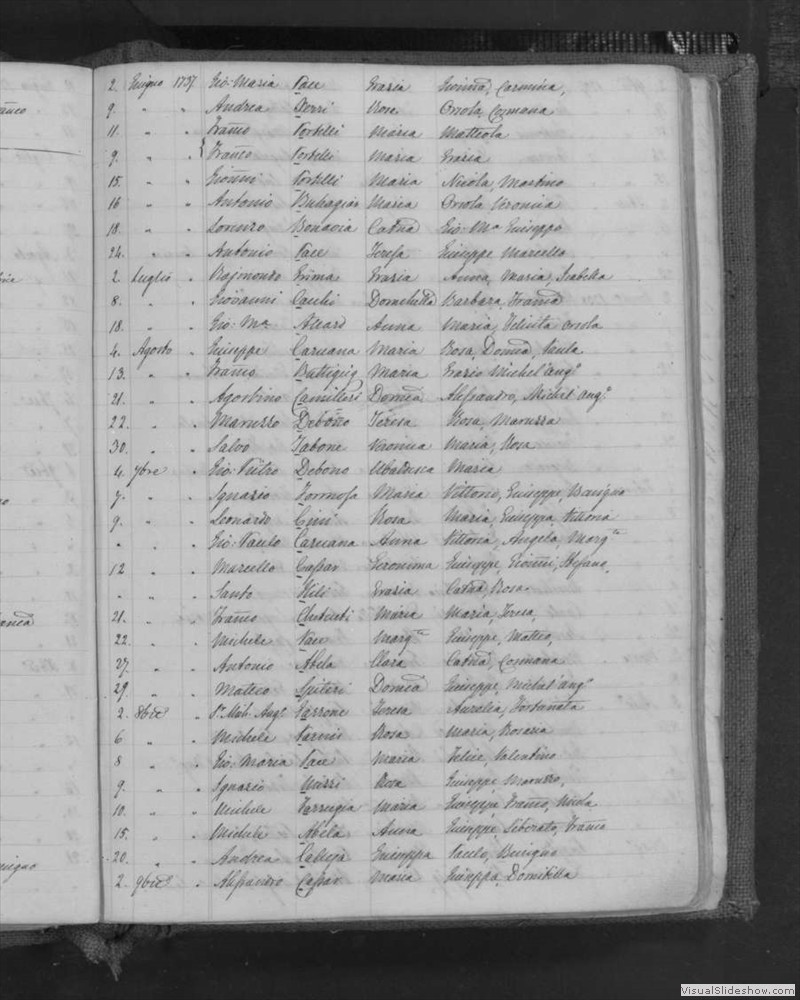 2. Giugno 1737. Gio: Maria Pace Grazia Gioañna, Carmina,
9. " " Andrea Azzi Rosa Orsola, Cosmana
11. " " Franco Portelli Maria Matteola
9. " " Franco Portelli Maria Grazia
15. " " Gioañni Portelli Maria Nicola, Martino
16 " " Antonio Buhagiar Maria Orsola Veronica
18. " " Lorenzo Bonavia Catña Gio: Ma Giuseppe
24. " " Antonio Pace Teresa Giuseppe Marcello
2 Luglio " Rajmondo Grima Grazia Anna, Maria, Isabella
8. " " Giovanni Cauchi Domchella Barbara, Franca
18. " " Gio: Ma Attard Anna Maria, Felicita Orsola
4. Agosto " Giuseppe Caruana Maria Rosa, Domca, Paula
13. " " Franco Buttigig Maria Grazio Michel'ango
21. " " Agostino Camilleri Domca Alessandro, Michel'ango
22. " " Maruzzo Debono Teresa Rosa, Maruzza
30. " " Salvo Tabone Veronica Maria, Rosa
4. 7bre " Gio: Pietro Debono Ubaldesca Maria
7. " " Ignazio Formosa Maria Vittorio, Giuseppe, Benigno
9. " " Leonardo Cini Rosa Maria, Giuseppa, Vittoria
" " " Gio: Paulo Caruana Anna Vittoria, Angela, Margta
12 " " Marcello Caspar Geronima Giuseppe, Gioañni, Stefano,
" " " Santo Xili Grazia Catña, Rosa
21. " " Franco Chetcuti Maria Maria, Teresa,
22. " " Michele Pace Margta Giuseppe, Matteo,
27. " " Antonio Abela Clara Catña, Cosmana
29. " " Matteo Spiteri Domca Giuseppe, Michel'ango
2. 8bre " Sr Mich. Ango Perrone Teresa Aurelia, Fortunata
6 " " Michele Farnis Rosa Maria, Rosaria
8 " " Gio: Maria Pace Maria Felice, Valentino
9. " " Ignazio Mizzi Rosa Giuseppe Maruzzo,
10. " " Michele Farrugia Maria Giuseppe Franco, Nicola
15. " " Michele Abela Anna Giuseppe, Liberato, Franco
20. " " Andrea Calleja Giuseppa Paulo, Benigno
2. 9bre " Alessandro Caspar Maria Giuseppa, Domitilla
VisualSlideshow.com